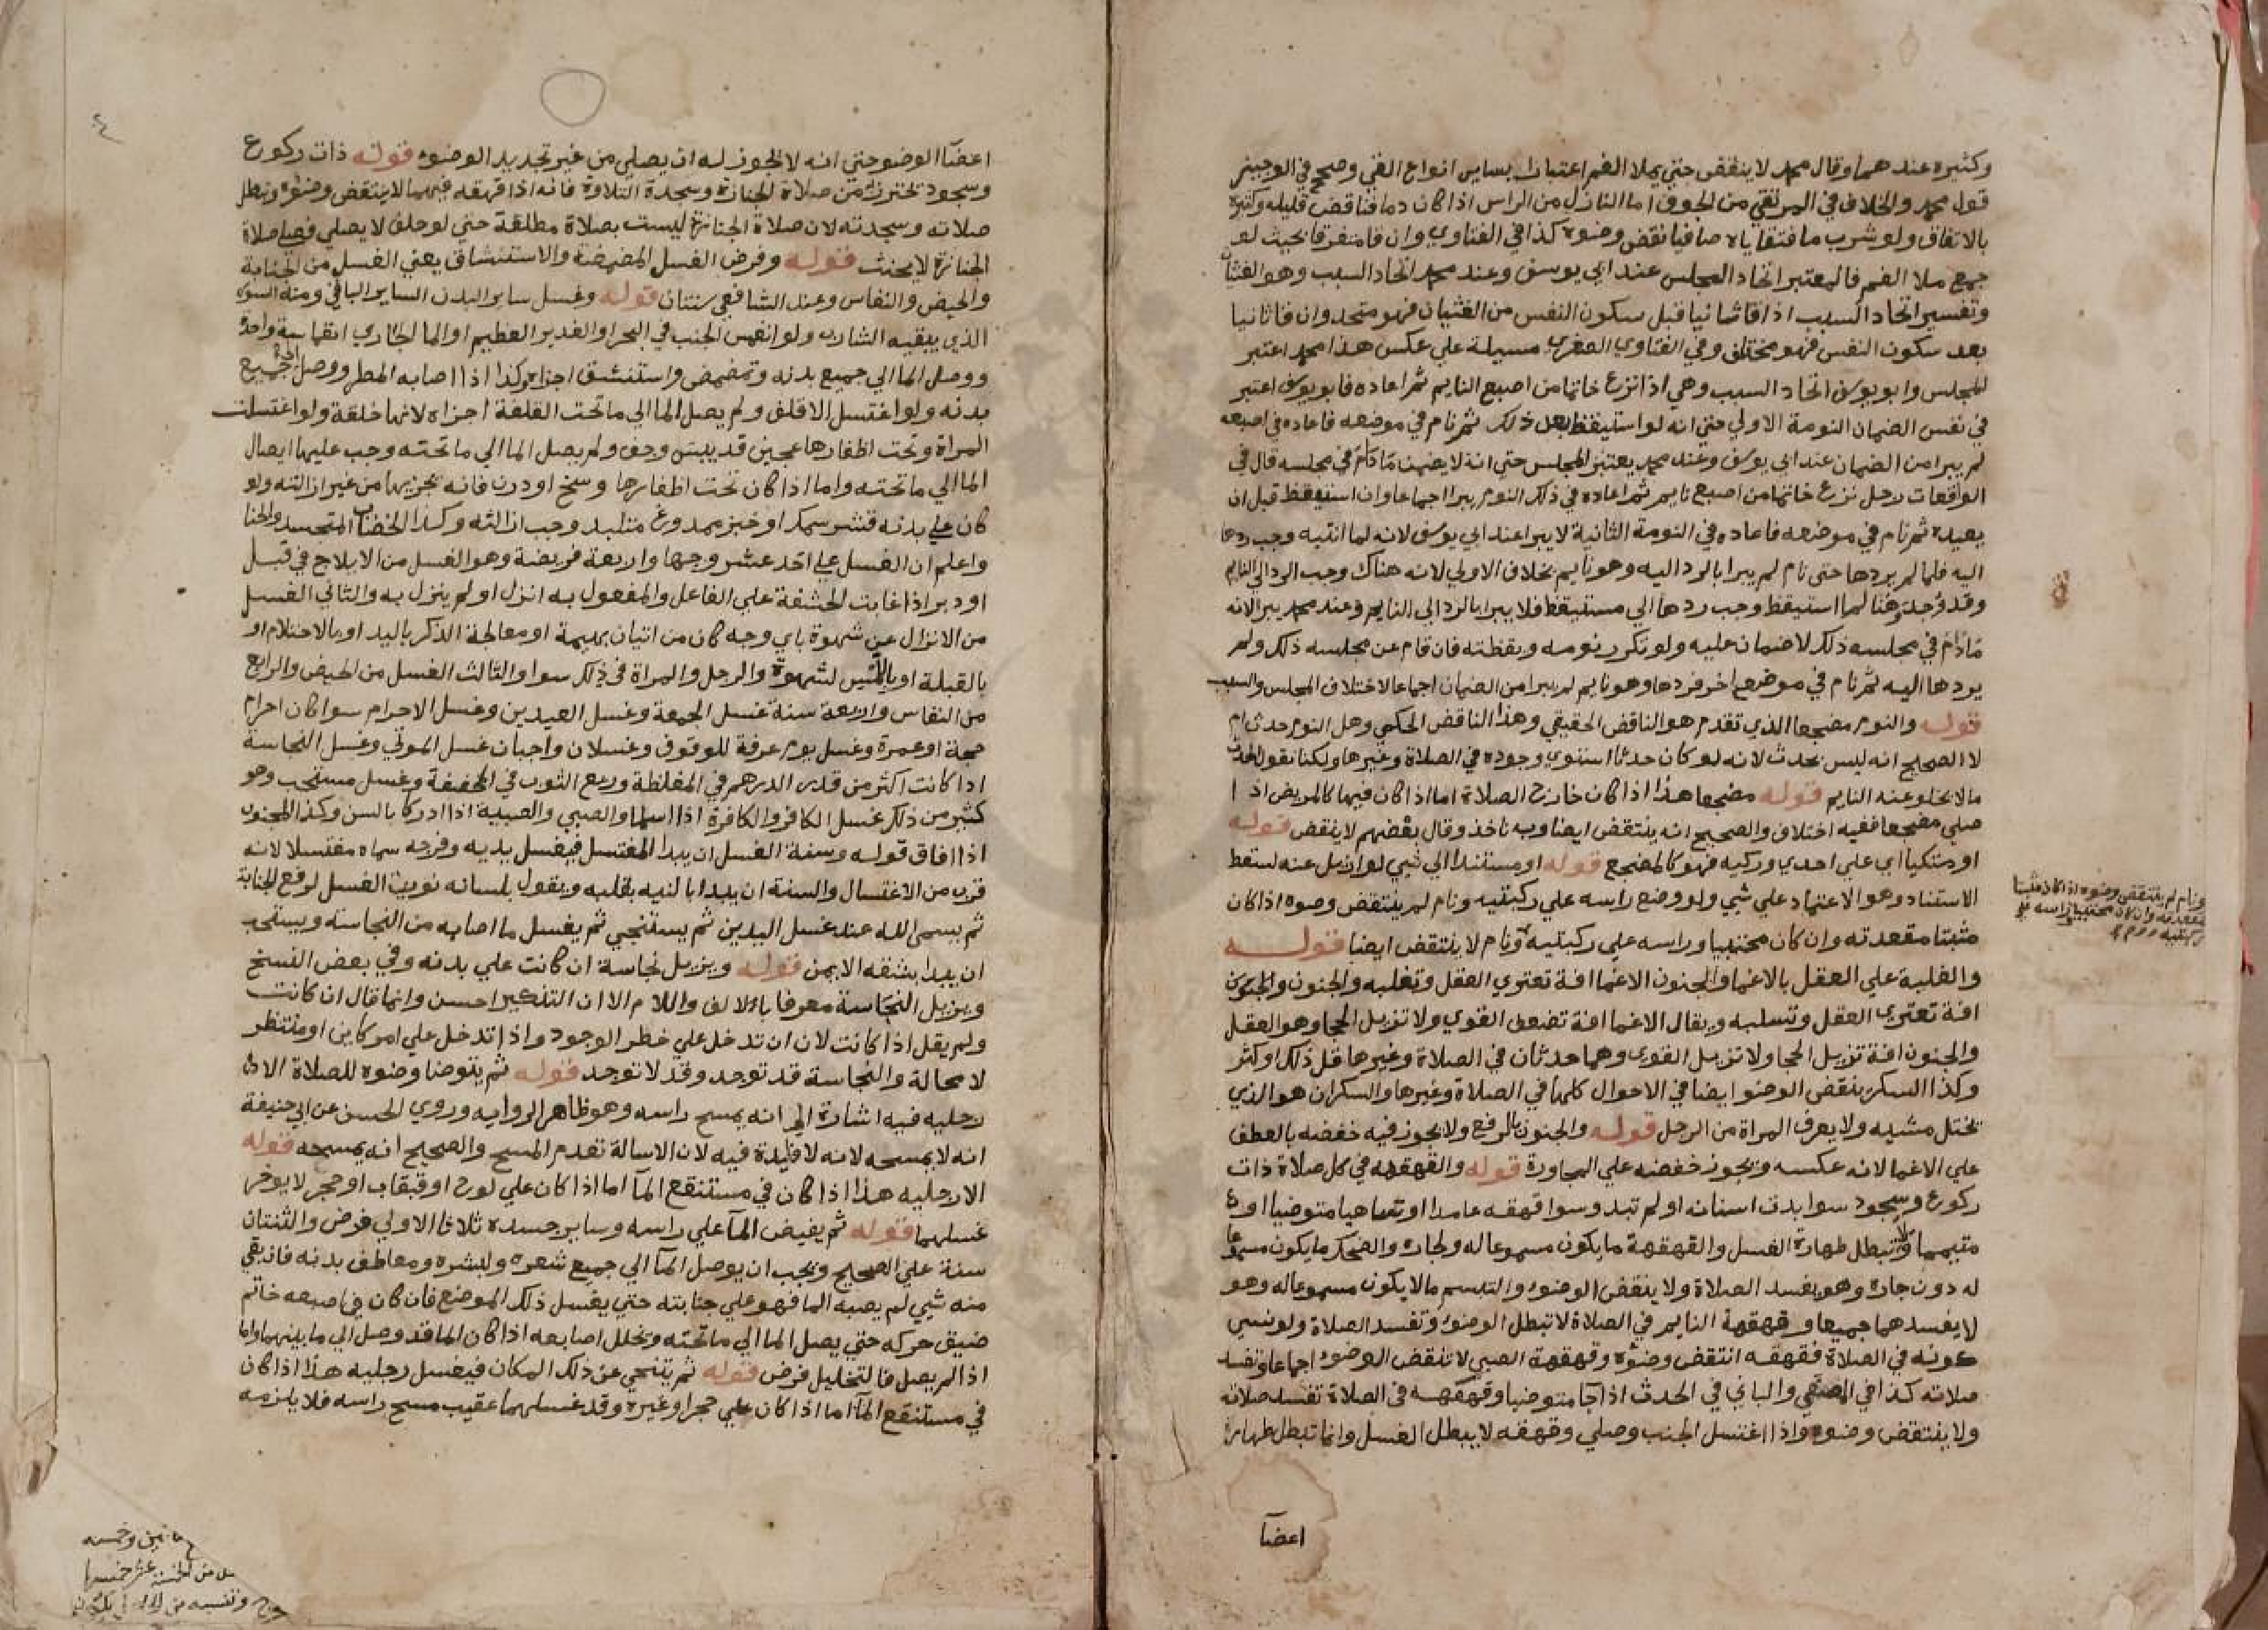 وكثيره عندهما وقال محمد لا ينقض حتي يملا الفم اعتبارا بساير انواع القي وصحح في الوجيز
قول محمد والخلاف في المرتقي من الجوف اما النازل من الراس اذا كان دما فناقض قليله وكثيره
بالاتفاق ولو شرب ما فتقاياه صافيا نقض وضوه كذا في الفتاوي وان قا متفرقا بحيث لو
جمع ملا الفم فالمعتبر اتحاد المجلس عند ابي يوسف وعند محمد اتحاد السبب وهو الغثيان
وتفسير اتحاد السبب اذا قا ثانيا قبل سكون النفس من الغثيان فهو متحد وان قا ثانيا
بعد سكون النفس فهو مختلف وفي الفتاوي الصغري مسيلة علي عكس هذا محمد اعتبر
المجلس وابو يوسف اتحاد السبب وهي اذا نزع خاتما من اصبع النايم ثم اعاده فابو يوسف اعتبر
في نفس الضمان النومة الاولي حتي انه لو استيقظ بعد ذلك ثم نام في موضعه فاعاده في اصبعه
لم يبرا من الضمان عند ابي يوسف وعند محمد يعتبر المجلس حتي انه لا يضمن ما دام في مجلسه قال في
الواقعات رجل نزع خاتما من اصبع نايم ثم اعاده في ذلك النوم يبرا اجماعا وان استيقظ قبل ان
يعيده ثم نام في موضعه فاعاده في النومة الثانية لا يبرا عند ابي يوسف لانه لما انتبه وجب ردها
اليه فلما لم يردها حتي نام لم يبرا بالرد اليه وهو نايم بخلاف الاولي لانه هناك وجب الرد الي النايم
وقد وجد وهنا لما استيقظ وجب ردها الي مستيقظ فلا يبرا بالرد الي النايم وعند محمد يبرا لانه
ما دام في مجلسه ذلك لا ضمان عليه ولو تكرر نومه ويقظته فان قام عن مجلسه ذلك ولم
يردها اليه ثم نام في موضع اخر فردها وهو نايم لم يبرا من الضمان اجماعا لاختلاف المجلس والسبب
قوله والنوم مضجعا الذي تقدم هو الناقض الحقيقي وهذا الناقض الحكمي وهل النوم حدث ام
لا الصحيح انه ليس بحدث لانه لو كان حدثا استوي وجوده في الصلاة وغيرها ولكنا نقول الحدث
ما لا يخلو عنه النايم قوله مضجعا هذا اذا كان خارج الصلاة اما اذا كان فيها كالمريض اذا
صلي مضجعا ففيه اختلاف والصحيح انه ينتقض ايضا وبه ناخذ وقال بعضهم لا ينقض قوله
او متكيا اي علي احدي وركيه فهو كالمضجع قوله او مستندا الي شي لو ازيل عنه لسقط
الاستناد هو الاعتماد علي شي ولو وضع راسه علي ركبتيه ونام لم ينتقض وضوه اذا كان
مثبتا مقعدته وان كان محتبيا وراسه علي ركبتيه ونام لا ينتقض ايضا قوله
والغلبة علي العقل بالاغما والجنون الاغما افة تعتري العقل وتغلبه والجنون والجنون
افة تعتري العقل وتسلبه ويقال الاغما افة تضعف القوي ولا تزيل الحجا وهو العقل
والجنون افة تزيل الحجا ولا تزيل القوي وهما حدثان في الصلاة وغيرها قل ذلك او كثر
وكذا السكر ينقض الوضو ايضا في الاحوال كلها في الصلاة وغيرها والسكران هو الذي
يختل مشيه ولا يعرف المراة من الرجل قوله والجنون بالرفع ولا يجوز فيه خفضه بالعطف
علي الاغما لانه عكسه ويجوز خفضه علي المجاورة قوله والقهقهه في كل صلاة ذات
ركوع وسجود سوا بدت اسنانه او لم تبد وسوا قهقه عامدا او ساهيا متوضيا او
متيمما ولا تبطل طهارة الغسل والقهقهة ما يكون مسموعا له ولجاره والضحك ما يكون مسموعا
له دون جاره وهو يفسد الصلاة ولا ينقض الوضوء والتبسم ما لا يكون مسموعا له وهو
لا يفسدهما جميعا وقهقهة النايم في الصلاة لا تبطل الوضوء وتفسد الصلاة ولو نسي
كونه في الصلاة فقهقه انتقض وضوه وقهقهة الصبي لا تنقض الوضوء اجماعا وتفسد
صلاته كذا في المصفي والباني في الحدث اذا جا متوضيا وقهقه في الصلاة تفسد صلاته
ولا ينتقض وضوه واذا اغتسل الجنب وصلي وقهقه لا يبطل الغسل وانما تبطل طهارة
اعضآ
ونام لم ينتقض وضوه اذا كان مثبتا
مقعدته وان كان محتبيا وراسه علي
ركبتيه
اعضآ الوضو حتي انه لا يجوز له ان يصلي من غير تجديد الوضوء قوله ذات ركوع
وسجود تحترز به من صلاة الجنازة وسجدة التلاوة فانه اذا قهقه فيهما لا ينتقض وضوه وتبطل
صلاته وسجدته لان صلاة الجنازة ليست بصلاة مطلقة حتي لو حلف لا يصلي فصلي صلاة
الجنازة لا يحنث قوله وفرض الغسل المضمضة والاستنشاق يعني الغسل من الجنابة
والحيض والنفاس وعند الشافعي سنتان قوله وغسل ساير البدن الساير الباقي ومنه السور
الذي يبقيه الشارب ولو انغمس الجنب في البحر او الغدير العظيم او الما الجاري انغماسة واحدة
ووصل الما الي جميع بدنه وتمضمض واستنشق اجزاه وكذا اذا اصابه المطر ووصل الي جميع
بدنه ولو اغتسل الاقلف ولم يصل الما الي ما تحت القلفة اجزاه لانها خلقة ولو اغتسلت
المراة وتحت اظفارها عجين قد يبس وجف ولم يصل الما الي ما تحته وجب عليها ايصال
الما الي ما تحته واما اذا كان تحت اظفارها وسخ او درن فانه يجزيها من غير ازالته ولو
كان علي بدنه قشر سمك او خبز ممضوغ متلبد وجب ازالته وكذا الخضاب المتجسد والحنا
واعلم ان الغسل علي احد عشر وجها واربعة فريضة وهو الغسل من الايلاج في قبل
او دبر اذا غابت الحشفة علي الفاعل والمفعول به انزل او لم ينزل به والثاني الغسل
من الانزال عن شهوة باي وجه كان من اتيان بهيمة او معالجة الذكر باليد او بالاحتلام او
بالقبلة او باللمس لشهوة والرجل والمراة في ذلك سوا والثالث الغسل من الحيض والرابع
من النفاس واربعة سنة غسل الجمعة وغسل العيدين وغسل الاحرام سوا كان احرام
حجة او عمرة وغسل يوم عرفة للوقوف وغسلان واجبان غسل الموتي وغسل النجاسة
اذا كانت اكثر من قدر الدرهم في المغلظة وربع الثوب في المخففة وغسل مستحب وهو
كثير من ذلك غسل الكافر والكافرة اذا اسلما والصبي والصبية اذا ادركا بالسن وكذا المجنون
اذا افاق قوله وسنة الغسل ان يبدا المغتسل فيغسل يديه وفرجه سماه مغتسلا لانه
قرب من الاغتسال والسنة ان يبدا بالنيه بقلبه ويقول بلسانه نويت الغسل لرفع الجنابة
ثم يسمي الله عند غسل اليدين ثم يستنجي ثم يغسل ما اصابه من النجاسة ويستحب
ان يبدا بشقه الايمن قوله ويزيل نجاسة ان كانت علي بدنه وفي بعض النسخ
ويزيل النجاسة معرفا بالالف واللام الا ان التنكير احسن وانما قال ان كانت
ولم يقل اذا كانت لان ان تدخل علي خطر الوجود واذا تدخل علي امر كاين او منتظر
لا محالة والنجاسة قد توجد وقد لا توجد قوله ثم يتوضا وضوه للصلاة الا
رجليه فيه اشارة الي انه يمسح راسه وهو ظاهر الروايه وروي الحسن عن ابي حنيفة
انه لا يمسحه لانه لا فايدة فيه لان الاسالة تقدم المسح والصحيح انه يمسحه قوله
الا رجليه هذا اذا كان في مستنقع المآ اما اذا كان علي لوح او قبقاب او حجر لا يوخر
غسلهما قوله ثم يفيض المآ علي راسه وساير جسده ثلاثا الاولي فرض والثنتان
سنة علي الصحيح ويجب ان يوصل المآ الي جميع شعره وبشره ومعاطف بدنه فان بقي
منه شي لم يصبه الما فهو علي جنابته حتي يغسل ذلك الموضع فان كان في اصبعه خاتم
ضيق حركه حتي يصل الما الي ما تحته ويخلل اصابعه اذا كان الما قد وصل الي ما بينهما واما
اذا لم يصل فالتخليل فرض قوله ثم يتنحي عن ذلك المكان فيغسل رجليه هذا اذا كان
في مستنقع المآ اما اذا كان علي حجر او غيره وقد غسلهما عقيب مسح راسه فلا يلزمه